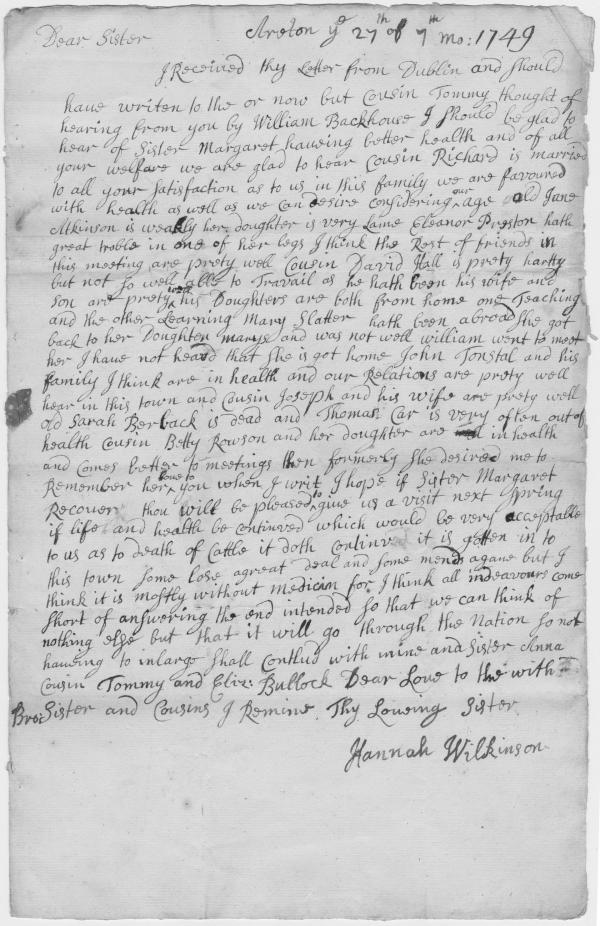 Areton ye 27th of 7th mo: 1749
Dear Sister
I Received thy Letter from Dublin and should
have writen to the or now but Cousin Tommy thought of
hearing from you by William Backhouse I should be glad to
hear of Sister Margaret haveing better health and of all
your welfare we are glad to hear Cousin Richard is married
to all your satisfaction as to us in this family we are favoured
with health as well as we can desire considering our age old Jane
Atkinson is weakly her daughter is very Lame Eleanor Preston hath
great troble in one of her legs I think the Rest of friends in
this meeting are prety well Cousin David Hall is prety harty
but not so well able to Travail as he hath been his wife and
son are prety well his Doughters are both from home one Teaching
and the other Learning Mary Slatter hath been abroad she got
back to her Doughter marys and was not well william went to meet
her I have not heard that she is got home John Tonstal and his
family I think are in health and our Relations are prety well
hear in this town and Cousin Joseph and his wife are prety well
old Sarah Berback is dead and Thomas Car is very often out of
health Cousin Betty Rowson and her doughter are in health
and comes better to meetings then formerly she desired me to
Remember her love to you when I writ I hope if Sister Margaret
Recover thou will be pleased to give us a visit next spring
if life and health be continued which would be very acceptable
to us as to death of Cattle it doth continue it is gotten in to
this town some lose agreat deal and some mends agane but I
think it is mostly without medicin for I think all indeavours come
short of answering the end intended so that we can think of
nothing else but that it will go through the Nation so not
haveing to inlarge shall Conclud with mine and sister Anna
Cousin Tommy and Eliz: Bullock Dear Love to the with
Bro: Sister and Cousins I Remine Thy Loveing Sister
Hannah Wilkinson